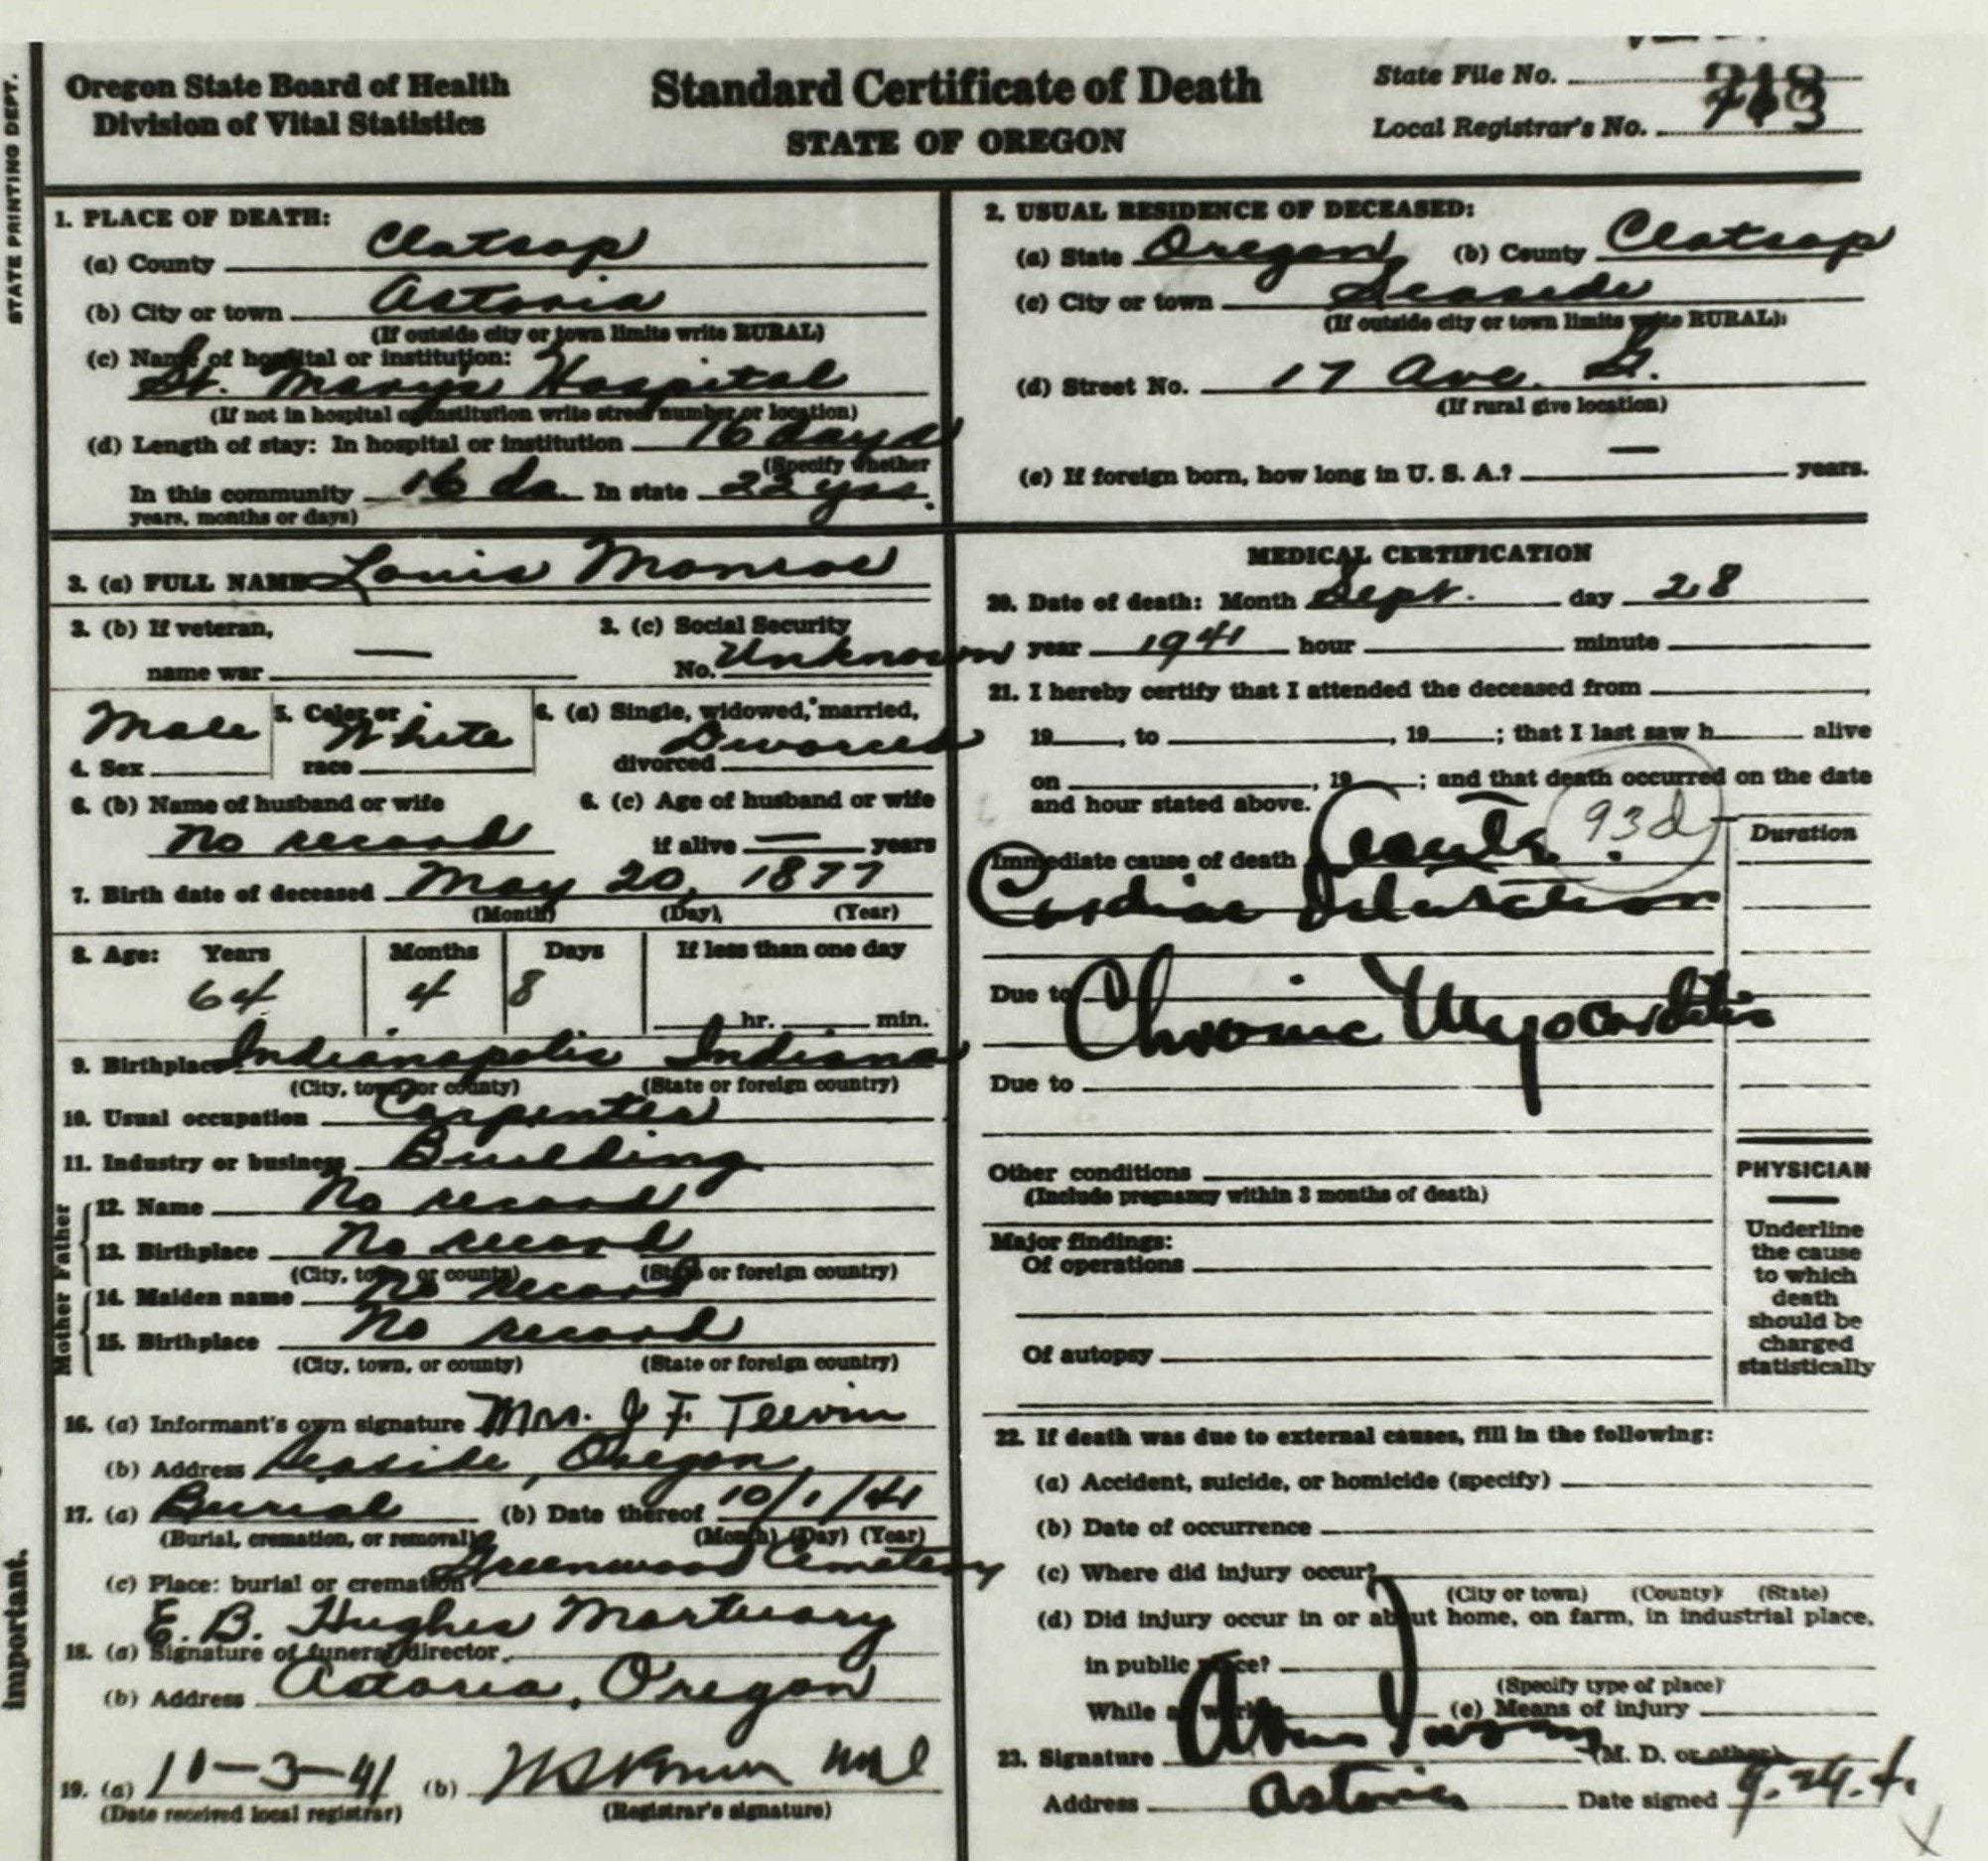 STATE PRINTING DEPT.
Important.
Oregon State Board of Health
Division of Vital Statistics
Standard Certificate of Death
STATE OF OREGON
State File No.
Local Registrar's No.
1. PLACE OF DEATH:
(a) County Clatsop
(b) City or town Astoria
(If outside city or town limits write RURAL)
(c) Name of hospital or institution:
St. Marys Hospital
(If not in hospital or institution write street number or location)
(d) Length of stay: In hospital or institution 16 days
(Specify whether
In this community 16 da. In state 22 yrs.
years, months or days)
2. USUAL RESIDENCE OF DECEASED:
(a) State Oregon (b) County Clatsop
(c) City or town Seaside
(If outside city or town limits write RURAL)
(d) Street No. 17 Ave.
(If rural give location)
(e) If foreign born, how long in U. S. A.? — years.
3. (a) FULL NAME Louis Monroe
3. (b) If veteran, 3. (c) Social Security
name war — No. Unknown
Male 5. Color or White 6. (a) Single, widowed, married,
4. Sex race divorced Divorced
6. (b) Name of husband or wife 6. (c) Age of husband or wife
No record if alive — years
7. Birth date of deceased May 20, 1877
(Month) (Day) (Year)
8. Age: Years Months Days If less than one day
64 4 8
hr. min.
9. Birthplace Indianapolis Indiana
(City, town, or county) (State or foreign country)
10. Usual occupation Carpenter
11. Industry or business Building
Father
12. Name No record
13. Birthplace No record
(City, town, or county) (State or foreign country)
Mother
14. Maiden name No record
15. Birthplace No record
(City, town, or county) (State or foreign country)
16. (a) Informant's own signature Mrs. J F.
(b) Address Seaside, Oregon
17. (a) Burial (b) Date thereof 10/1/41
(Burial, cremation, or removal) (Month) (Day) (Year)
(c) Place: burial or cremation Greenwood Cemetery
E. B. Hughes Mortuary
18. (a) Signature of funeral director
(b) Address Astoria, Oregon
19. (a) (b)
(Date received local registrar) (Registrar's signature)
MEDICAL CERTIFICATION
20. Date of death: Month Sept. day 28
year 1941 hour minute
21. I hereby certify that I attended the deceased from
19 , to , 19 ; that I last saw h alive
on , 19 ; and that death occurred on the date
and hour stated above. 93d
Duration
Immediate cause of death Acute
Cardiac
Due to Chronic Myocarditis
Due to
Other conditions
(Include pregnancy within 3 months of death)
Major findings:
Of operations
Of autopsy
PHYSICIAN
Underline
the cause
to which
death
should be
charged
statistically
22. If death was due to external causes, fill in the following:
(a) Accident, suicide, or homicide (specify)
(b) Date of occurrence
(c) Where did injury occur?
(City or town) (County) (State)
(d) Did injury occur in or about home, on farm, in industrial place,
in public place?
(Specify type of place)
While at work? (e) Means of injury
23. Signature (M. D. or other)
Address Astoria Date signed